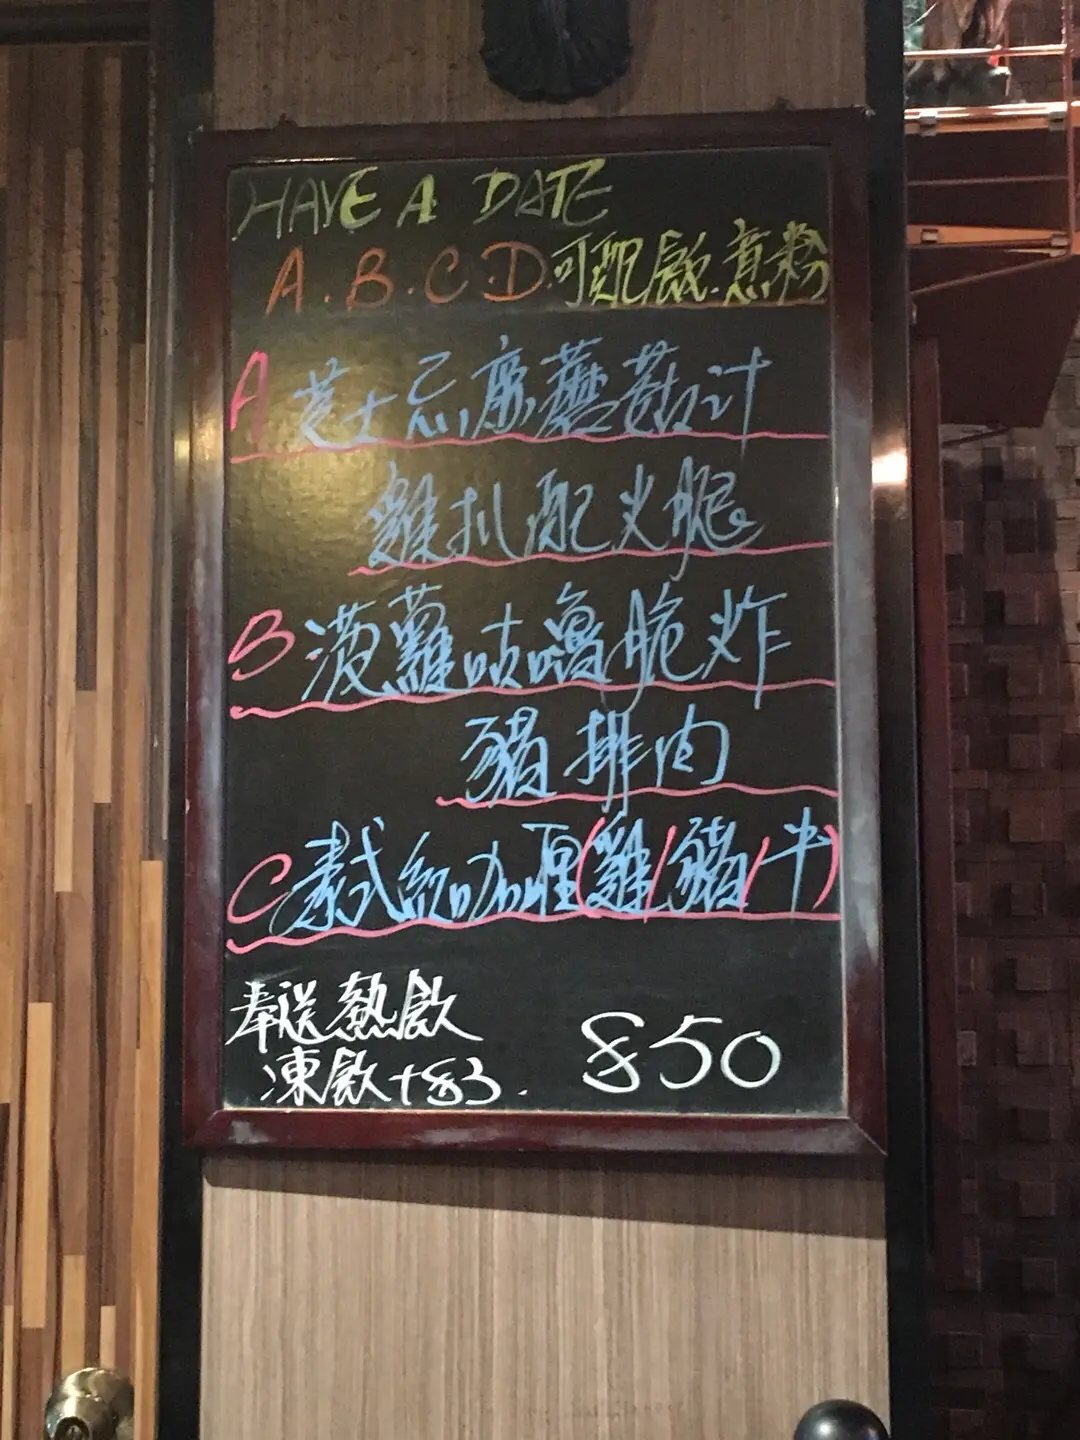 HAVE A DATE
A.B.C D.可配飯.意粉
A 芝士忌廉蘑菇汁
雞扒配火腿
B 菠蘿咕嚕脆炸
豬排肉
C 泰式紅咖喱(雞/豬/牛)
奉送熱飲
凍飲+$3.
$50